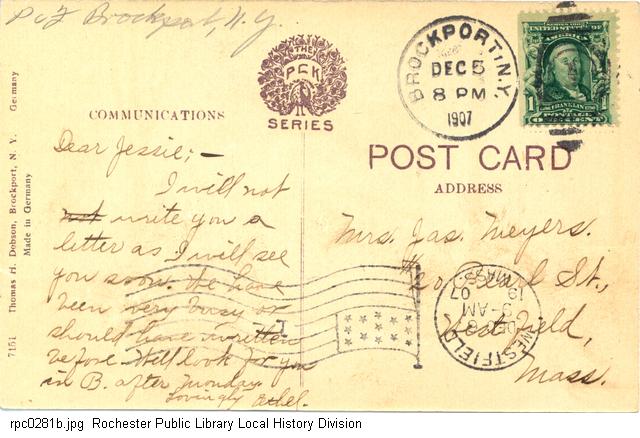 P c I Brockport, N.Y.
THE
P.C.K
SERIES
BROCKPORT, N.Y.
DEC 5
8 PM
1907
SERIES 1902
UNITED STATES OF
AMERICA
1
FRANKLIN
1
POSTAGE
ONE CENT
COMMUNICATIONS
POST CARD
ADDRESS
Dear Jessie; —
I will not
not write you a
letter as I will see
you soon. We have
been very busy or
should have written
before. Will look for you
in B. after Monday.
Lovingly Ethel.
Mrs. Jas. Meyers.
#20 Pearl St.,
Westfield,
Mass.
WESTFIELD
MASS.
DEC 8
9-AM
19 07
7151 Thomas H. Dobson, Brockport, N. Y. Germany
Made in Germany
rpc0281b.jpg Rochester Public Library Local History Division